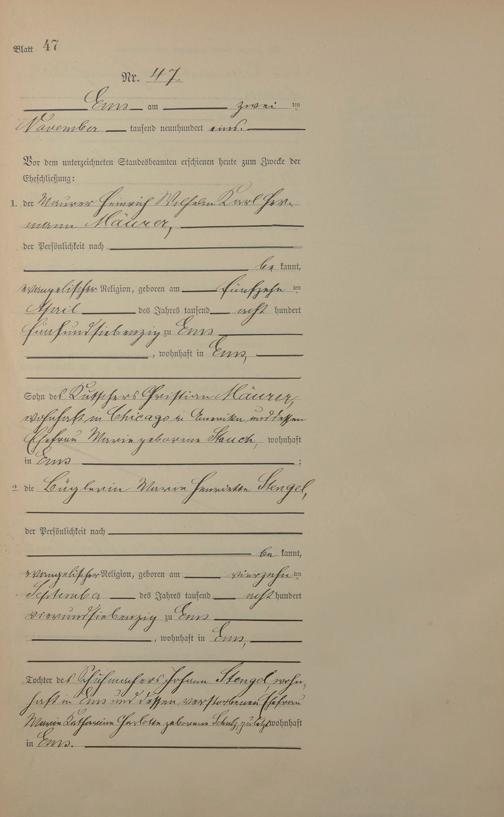 Blatt 47
Nr. 47.
Ems am zwei ten
November tausend neunhundert eins.
Vor dem unterzeichneten Standesbeamten erschienen heute zum Zwecke der
Eheschließung:
1. der Maurer Heinrich Wilhelm Karl Her-
mann Mäurer,
der Persönlichkeit nach
be kannt,
evangelischer Religion, geboren am fünfzehn ten
April des Jahres tausend acht hundert
fünfundsiebenzig zu Ems
, wohnhaft in Ems,
Sohn des Kutschers Christian Mäurer,
wohnhaft in Chicago in Amerika und dessen
Ehefrau Marie geborene Stauch, wohnhaft
in Ems ;
2. die Büglerin Marie Henriette Stengel,
der Persönlichkeit nach
be kannt,
evangelischer Religion, geboren am vierzehn ten
September des Jahres tausend acht hundert
vierundsiebenzig zu Ems
, wohnhaft in Ems,
Tochter des Schuhmachers Johann Stengel, wohn-
haft in Ems und dessen verstorbenen Ehefrau
Marie Katharine geborene zuletzt wohnhaft
in Ems.